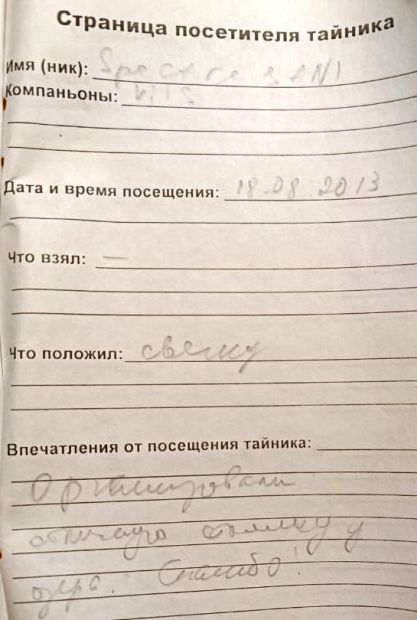 Страница посетителя тайника
Имя (ник):
Компаньоны:
Дата и время посещения: 18.08.2013
Что взял: —
Что положил: свечку
Впечатления от посещения тайника:
Организовали
отличную стоянку у
озера. Спасибо!